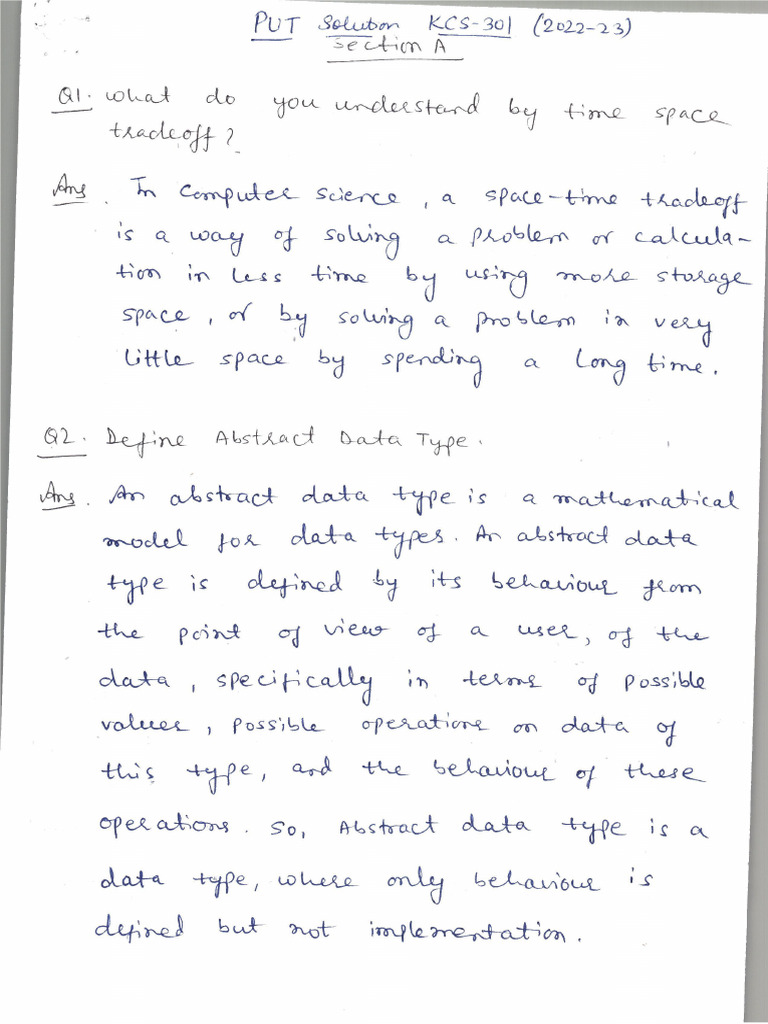 PUT Solution KCS-301 (2022-23)
Section A
Q1. What do you understand by time space
tradeoff?
Ans. In Computer science, a space-time tradeoff
is a way of solving a problem or calcula-
tion in less time by using more storage
space, or by solving a problem in very
little space by spending a long time.
Q2. Define Abstract Data Type.
Ans. An abstract data type is a mathematical
model for data types. An abstract data
type is defined by its behaviour from
the point of view of a user, of the
data, specifically in terms of possible
values, possible operations on data of
this type, and the behaviour of these
operations. So, Abstract data type is a
data type, where only behaviour is
defined but not implementation.